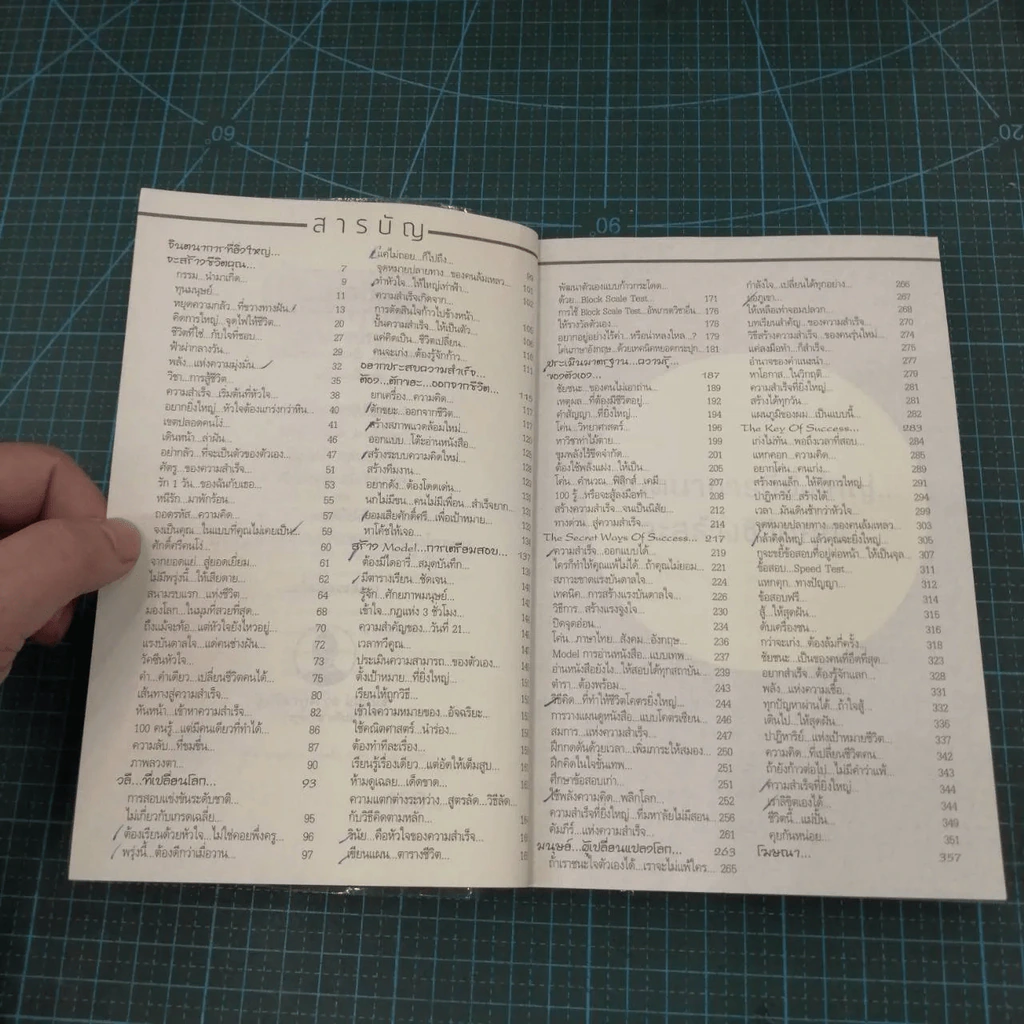 สารบัญ
จินตนาการที่ยิ่งใหญ่...
จะสร้างชีวิตคุณ... 7
กรรม...นำมาเกิด... 9
ทุนมนุษย์... 11
หยุดความกลัว...ที่ขวางทางฝัน 13
คิดการใหญ่...จุดไฟให้ชีวิต... 20
ชีวิตที่ใช่...กับใจที่ชอบ... 27
ฟ้าผ่ากลางวัน... 29
พลัง...แห่งความมุ่งมั่น 32
วิชา...การสู้ชีวิต... 35
ความสำเร็จ...เริ่มต้นที่หัวใจ... 38
อยากยิ่งใหญ่...หัวใจต้องแกร่งกว่าหิน... 40
เขตปลอดคนโง่... 41
เดินหน้า...ล่าฝัน... 46
อยากกลัว...ที่จะเป็นตัวของตัวเอง... 47
ศัตรู...ของความสำเร็จ... 51
รัก 1 วัน...ของฉันกับเธอ... 53
หนีรัก...มาพักร้อน... 55
ถอดรหัส...ความคิด... 57
จงเป็นคุณ...ในแบบที่คุณไม่เคยเป็น 59
ศักดิ์ศรีคนโง่... 60
จากยอดแย่...สู่ยอดเยี่ยม... 61
ไม่มีพรุ่งนี้...ให้เสียดาย... 62
สนามรบแรก...แห่งชีวิต... 64
มองโลก...ในมุมที่สวยที่สุด... 68
ถึงแม้จะท้อ...แต่หัวใจยังไหวอยู่... 70
แรงบันดาลใจ...แด่คนช่างฝัน... 72
วัคซีนหัวใจ... 73
คำ...คำเดียว...เปลี่ยนชีวิตคนได้... 75
เส้นทางสู่ความสำเร็จ... 80
หันหน้า...เข้าหาความสำเร็จ... 82
100 คนรู้...แต่มีคนเดียวที่ทำได้... 86
ความลับ...ที่ขมขื่น... 87
ภาพลวงตา... 90
วลี...ที่เปลี่ยนโลก... 93
การสอบแข่งขันระดับชาติ...
ไม่เกี่ยวกับเกรดเฉลี่ย... 95
ต้องเรียนด้วยหัวใจ...ไม่ใช่คอยพึ่งครู... 96
พรุ่งนี้...ต้องดีกว่าเมื่อวาน... 97
แค่ไม่ถอย...ก็ไปถึง...
จุดหมายปลายทาง...ของคนล้มเหลว...
ทำหัวใจ...ให้ใหญ่เท่าฟ้า 101
ความสำเร็จเกิดจาก... 102
การตัดสินใจก้าวไปข้างหน้า
ปั้นความสำเร็จ...ให้เป็นตัว...
แค่คิดเป็น...ชีวิตเปลี่ยน...
คนจะเก่ง...ต้องรู้จักก้าว...
อยากประสบความสำเร็จ... 111
ต้อง...ตัก...ออกจากชีวิต... 115
ยกเครื่อง...ความคิด...
ตักขยะ...ออกจากชีวิต...
สร้างสภาพแวดล้อมใหม่...
ออกแบบ...โต๊ะอ่านหนังสือ...
สร้างระบบความคิดใหม่...
สร้างทีมงาน...
อยากดัง...ต้องโดดเด่น...
นกไม่มีขน...คนไม่มีเพื่อน...สำเร็จยาก
ยอมเสียศักดิ์ศรี...เพื่อเป้าหมาย...
หาโค้ชให้เจอ...
สร้าง Model...การเตรียมสอบ... 137
ต้องมีไดอารี่...สมุดบันทึก...
มีตารางเรียน...ชัดเจน...
รู้จัก...ศักยภาพมนุษย์...
เข้าใจ...กฎแห่ง 3 ชั่วโมง...
ความสำคัญของ...วันที่ 21...
เวลาทวีคูณ...
ประเมินความสามารถ...ของตัวเอง...
ตั้งเป้าหมาย...ที่ยิ่งใหญ่...
เรียนให้ถูกวิธี...
เข้าใจความหมายของ...อัจฉริยะ...
ใช้คณิตศาสตร์...นำร่อง...
ต้องทำทีละเรื่อง...
เรียนรู้เรื่องเดียว...แต่อัดให้เต็มสูบ...
ห้ามดูเฉลย...เด็ดขาด...
ความแตกต่างระหว่าง...สูตรลัด...วิธีลัด...
กับวิธีคิดตามหลัก...
วินัย...คือหัวใจของความสำเร็จ...
เขียนแผน...ตารางชีวิต...
พัฒนาตัวเองแบบก้าวกระโดด...
ด้วย...Block Scale Test... 171
การใช้ Block Scale Test...อัพเกรดวิชาอื่น... 176
ให้รางวัลตัวเอง... 178
อยากอยู่อย่างไร้ค่า...หรือน่าหลงใหล...? 179
โค่นภาษาอังกฤษ...ด้วยเทคนิคหยอดกระปุก... 181
ประเมินมาตรฐาน...ความรู้...
ของตัวเอง... 187
ชัยชนะ...ของคนไม่เอาถ่าน... 189
เหตุผล...ที่ต้องมีชีวิตอยู่... 192
คำสัญญา...ที่ยิ่งใหญ่... 194
โค่น...วิทยาศาสตร์... 196
หาวิชาทำไม้ตาย... 199
ขุมพลังไร้ขีดจำกัด... 201
ต้องใช้พลังแฝง...ให้เป็น... 205
โค่น...คำนวณ...ฟิสิกส์...เคมี... 207
100 รู้...หรือจะสู้ลงมือทำ... 208
สร้างความสำเร็จ...จนเป็นนิสัย... 212
ทางด่วน...สู่ความสำเร็จ... 214
The Secret Ways Of Success... 217
ความสำเร็จ...ออกแบบได้... 219
ใครก็ทำให้คุณแพ้ไม่ได้...ถ้าคุณไม่ยอม... 221
สภาวะขาดแรงบันดาลใจ... 224
เทคนิค...การสร้างแรงบันดาลใจ... 226
วิธีการ...สร้างแรงจูงใจ... 230
ปิดจุดอ่อน... 234
โค่น...ภาษาไทย...สังคม...อังกฤษ... 236
Model การอ่านหนังสือ...แบบเทพ... 237
อ่านหนังสือยังไง...ให้สอบได้ทุกสถาบัน... 239
ตำรา...ต้องพร้อม... 243
วิธีคิด...ที่ทำให้ชีวิตโคตรยิ่งใหญ่... 244
การวางแผนดูหนังสือ...แบบโคตรเซียน... 246
สมการ...แห่งความสำเร็จ... 247
ฝึกกดดันด้วยเวลา...เพิ่มภาระให้สมอง... 250
ฝึกคิดในใจขั้นเทพ... 251
ศึกษาข้อสอบเก่า... 251
ใช้พลังความคิด...พลิกโลก... 252
ความสำเร็จที่ยิ่งใหญ่...ที่มหาลัยไม่มีสอน... 256
คัมภีร์...แห่งความสำเร็จ... 261
มนุษย์...ผู้เปลี่ยนแปลงโลก... 263
ถ้าเราชนะใจตัวเองได้...เราจะไม่แพ้ใคร... 265
กำลังใจ...เปลี่ยนได้ทุกอย่าง... 266
267
ให้เหลือเท่าจอมปลวก... 268
บทเรียนสำคัญ...ของความสำเร็จ... 270
วิธีสร้างความสำเร็จ...ของคนรุ่นใหม่... 274
แค่ลงมือทำ...ก็สำเร็จ... 276
อำนาจของคำแนะนำ... 277
หาโอกาส...ในวิกฤติ... 279
ความสำเร็จที่ยิ่งใหญ่... 281
สร้างได้ทุกวัน... 281
แผนภูมิของผม...เป็นแบบนี้... 282
The Key Of Success... 283
เก่งไม่ทัน...พอถึงเวลาที่สอบ... 284
แหกคอก...ความคิด... 285
อยากโค่น...คนเก่ง... 289
สร้างคนเล็ก...ให้คิดการใหญ่... 291
ปาฏิหาริย์...สร้างได้... 294
เวลา...มันเดินช้ากว่าหัวใจ... 299
จุดหมายปลายทาง...ของคนล้มเหลว... 303
กล้าคิดใหญ่...แล้วคุณจะยิ่งใหญ่... 305
กูจะขยี้ข้อสอบที่อยู่ต่อหน้า...ให้เป็นจุล... 307
ข้อสอบ...Speed Test... 311
แหกคุก...ทางปัญญา... 312
ข้อสอบฟรี... 314
สู้...ให้สุดฝัน... 315
ดับเครื่องชน... 316
กว่าจะเก่ง...ต้องล้มกี่ครั้ง... 318
ชัยชนะ...เป็นของคนที่อึดที่สุด... 323
อยากสำเร็จ...ต้องรู้จักแลก... 328
พลัง...แห่งความเชื่อ... 331
ทุกปัญหาผ่านได้...ถ้าใจสู้... 332
เดินไป...ให้สุดฝัน... 336
ปาฏิหาริย์...แห่งเป้าหมายชีวิต... 337
ความคิด...ที่เปลี่ยนชีวิตคน... 342
ถ้ายังก้าวต่อไป...ไม่มีคำว่าแพ้... 343
ความสำเร็จที่ยิ่งใหญ่... 344
344
ชีวิตนี้...แม่ปั้น... 349
คุยกันหน่อย... 351
โฆษณา... 357